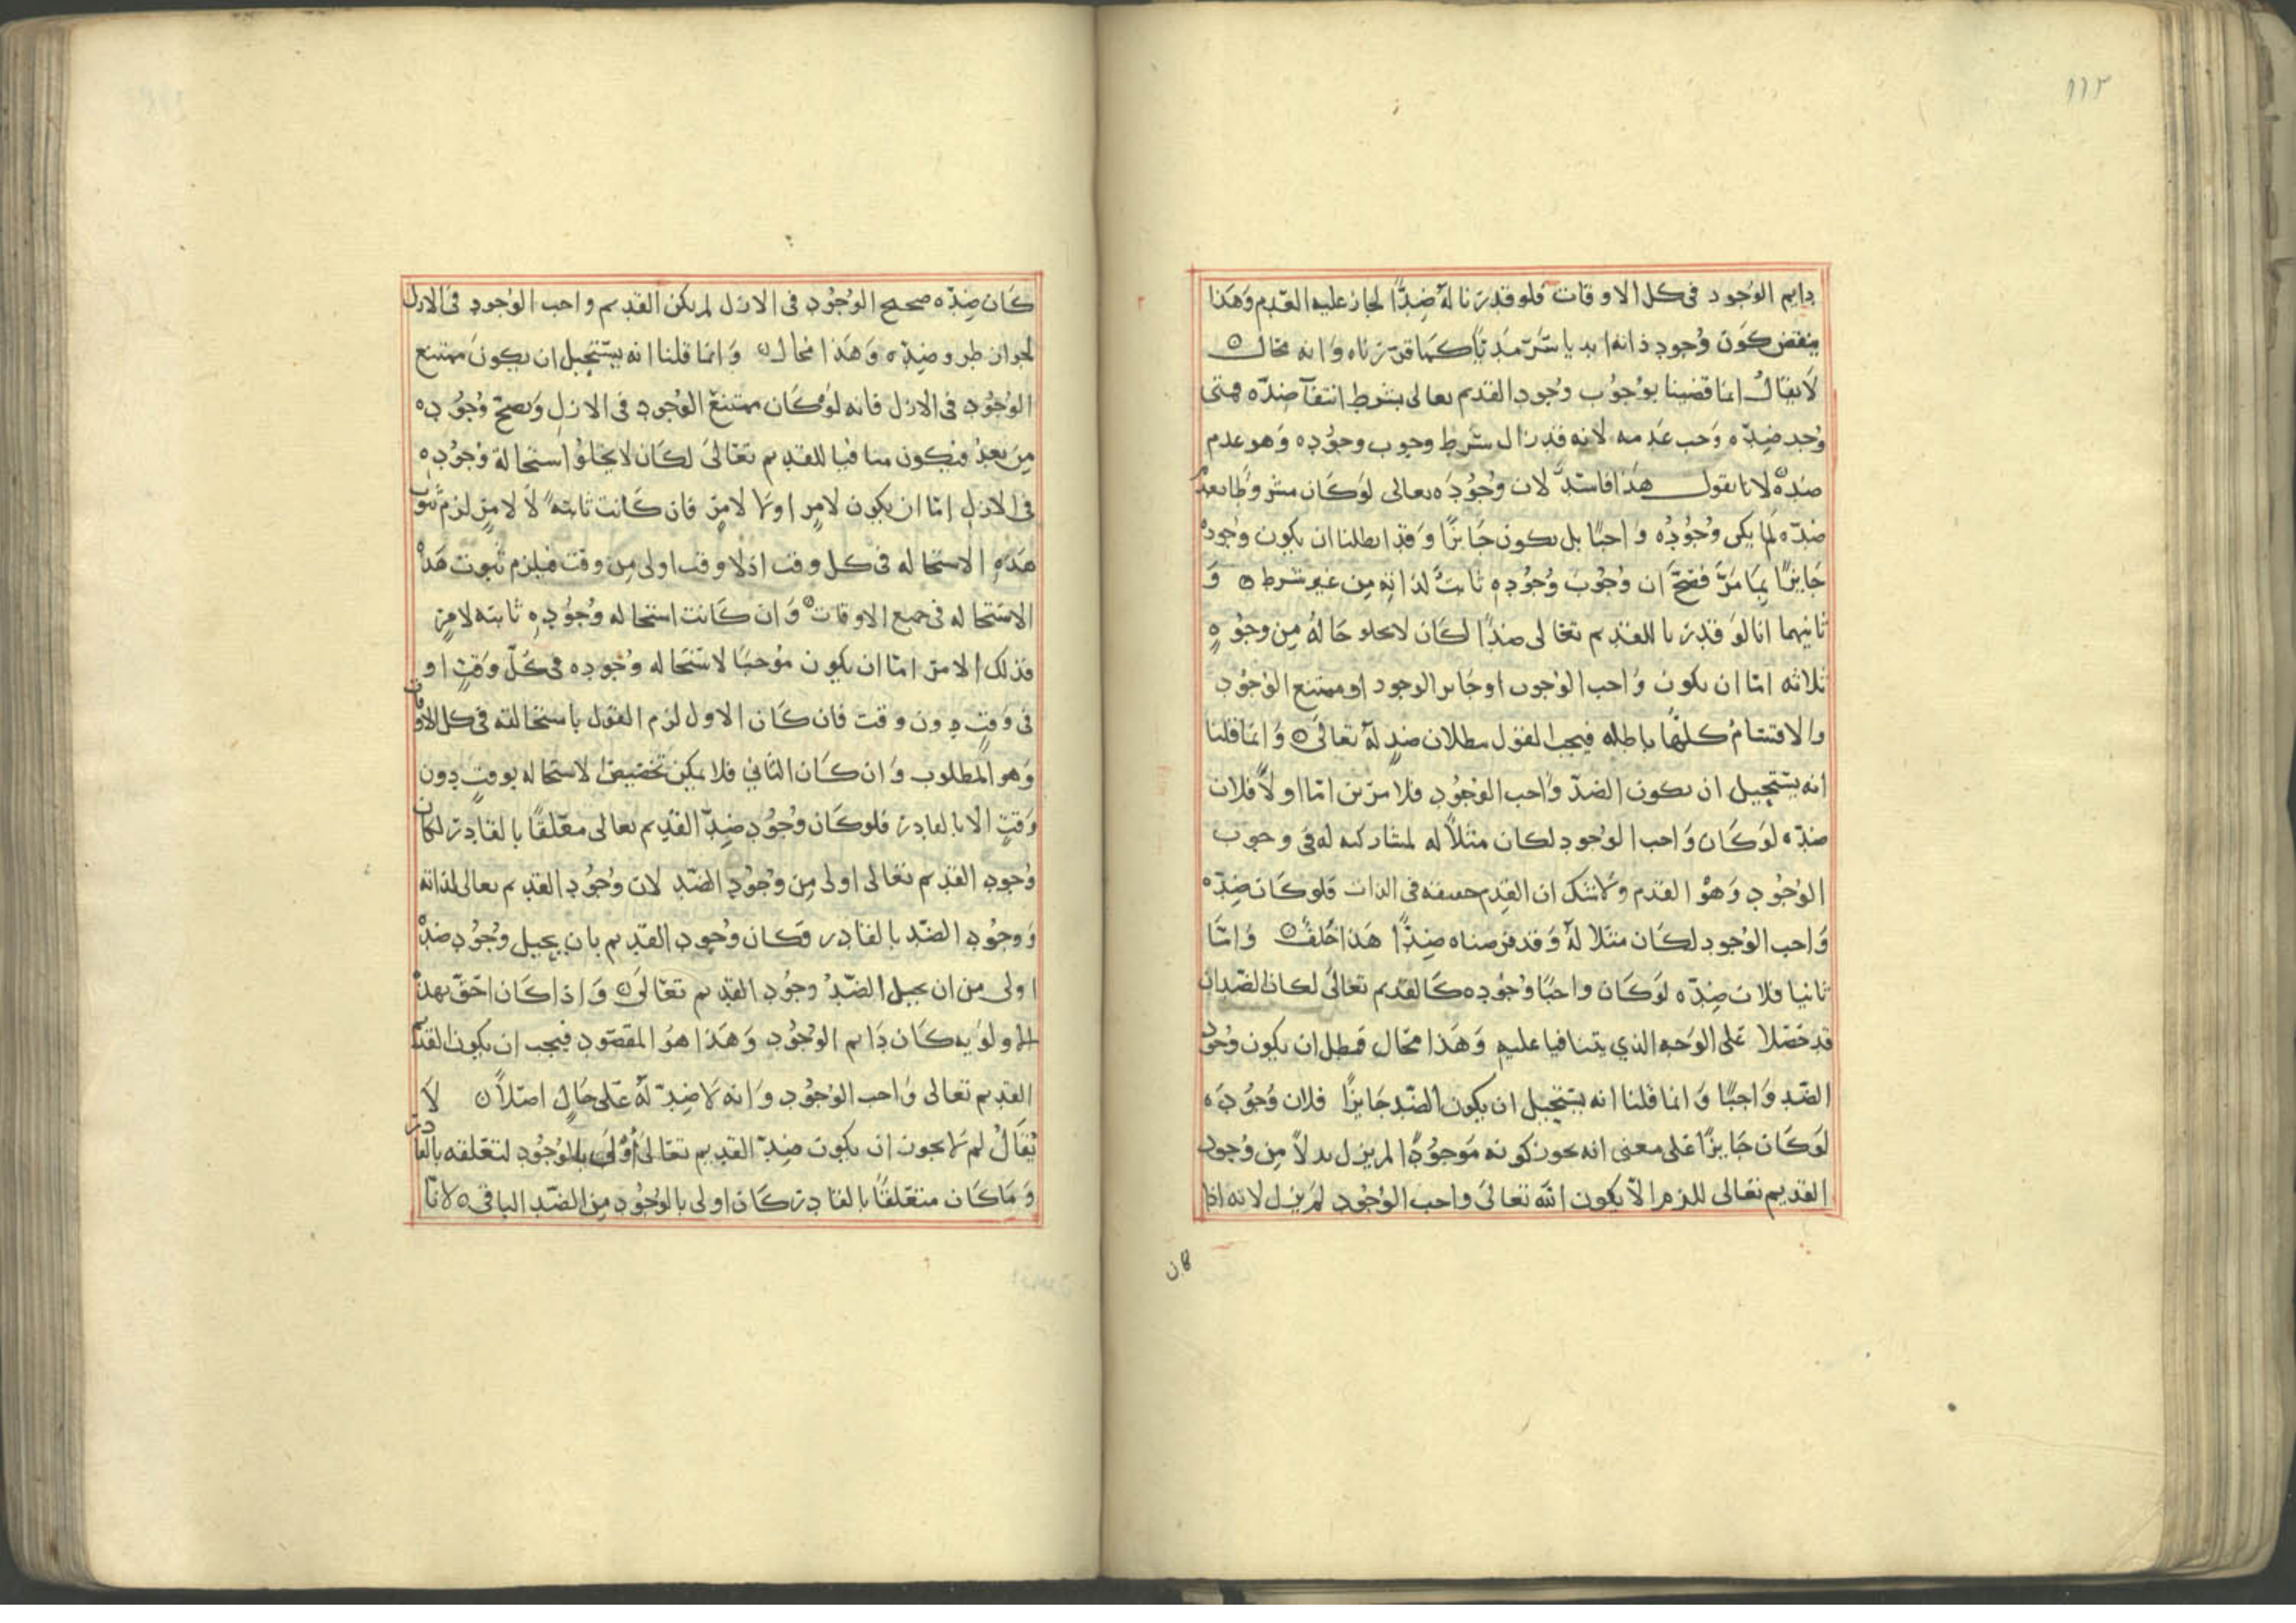 ١١٢
دايم الوجود فى كل الاوقات فلو قدرنا لهُ ضِدًّا لجاز عليه العَدِم وَهَذا
ينقض كَون وُجود ذاته ابديا سَرمَديًا كما قررناه وَانه محَال ۞
لَا يقالُ انما قضينا بوُجوُب وجود القديم تعالى بشرط انتفآ ضدّه فمتى
وُجد ضِدّه وَجب عَدمه لانه قد زال شرط وجوب وجوُده وَهو عدم
ضدّه لانا نقول هَذا فاسدٌ لان وُجُودَه تعالى لوَكَان مشروطا بعدم
ضدّه لما يكى وُجُودُه وَاجبًا بل يكون جَايزًا وَقد ابطلنا ان يكون وجوده
جَايزًا بِمَا مَرَّ فصَحَّ ان وُجُوبَ وُجُودِه ثابتٌ لذاتِه مِن غير شرط ۞ وَ
ثانيهما انا لوَ قدرنا للقديم تعَالى ضدًا لكَان لا يخلو حَالهُ مِن وجُوهٍ
ثلاثه امّا ان يكون وَاجب الوجوب اوجَايز الوجود او ممتنع الوُجُود
والاقسَامُ كلهَا باطله فيجب القول ببطلان ضدٍ لهُ تعَالى ۞ وَانما قلنا
انه يستحيل ان يكون الضدّ وَاجب الوُجُود فلامرين امّا اولاً فلان
ضدّه لوَكَان وَاجب الوجود لكان مثلاً له لمشاركته له فى وجوب
الوُجُود وَهوَ القدم وَلا شك ان القِدم حقيقه فى الذات فلو كَان ضِدّه
وَاجب الوجود لكَان مثلا لهُ وَقد فرضناه ضِدًّا هَذا خُلفٌ ۞ وَامّا
ثانيا فلان ضِدّه لوَكَان واجبًا وُجُوده كَالقديم تعَالىَ لكَان الضدان
قد حَصَلا عَلى الوَجه الذي يتنافيا عليه وَهَذا محَال فبطل ان يكون وُجُود
الضّد وَاجبًا وَانما قلنا انه يستحيل ان يكون الضّد جَايزًا فلان وُجُودَه
لوَكَان جَايزًا عَلى معنى انه يجوز كونه مَوجُودًا لم يزل بدلاً مِن وُجود
القديم تعَالى للزم الّا يكون الله تعَالىَ واجب الوُجُود لم يزل لانه اذا
كان
كَان ضِدّه صحيح الوُجُود فى الازل لم يكن القديم واجب الوُجود فى الازل
لجواز طروِ ضِدّه وَهَذا محَال ۞ وَانما قلنا انه يَستَحيل ان يكون ممتنع
الوُجُود فى الازل فانه لوَ كَان ممتنعَ الوُجود فى الازلِ وَيصحّ وُجُوده
مِن بعدُ فيكون منافيا للقديم تعَالىَ لكَان لا يخلوُ استحالة وُجُوده
فى الازلِ امّا ان يكون لامرٍ اولا لامرٍ فان كَانت ثابتهً لَا لامرٍ لزم ثبوت
هَذهِ الاستحاله فى كل وقت اذلا وقت اولى مِن وقت فيلزم ثبوت هَذه
الاستحاله فى جميع الاوقات ۞ وَان كَانت استحاله وُجُودِه ثابته لامرٍ
فذلك الامر امّا ان يكون مُوجبًا لاستحَاله وجوده فى كُلّ وَقتٍ او
فى وَقتٍ دون وقت فان كَان الاول لزم القول باستحالته فى كل الاوقات
وَهو المطلوب وَان كَان الثاني فلا يمكن تخصيص الاستحاله بوقتٍ دون
وَقتٍ الا بالقادر فلو كَان وُجُود ضِدّ القديم تعالى معَلّقًا بالقادر لكان
وُجود القديم تعَالى اولى مِن وُجُود الضدّ لان وُجُود القديم تعالى لذاته
وَوجُود الضدّ بالقادر فكان وُجود القديم بان يحيل وُجُود ضدّه
اولى من ان يحيل الضدُ وجُود القديم تعَالىَ ۞ وَاذا كَان احَقّ بهذه
الاولويه كَان دَايم الوُجُود وَهَذا هوَ المقصُود فيجب ان يكون القديم
القديم تعَالى وَاجب الوُجُود وَانه لَا ضِدّ لهُ عَلى حَالٍ اصلاً ۞ لَا
يُقَالُ لم لا يجوز ان يكون ضِدّ القديم تعَالىَ اَولىَ بالوُجُود لتعَلقه بالقادر
وَمَا كَان متعَلقًا بالقادر كَان اولى بالوُجُود مِن الضّد الباقى ۞ لانّا